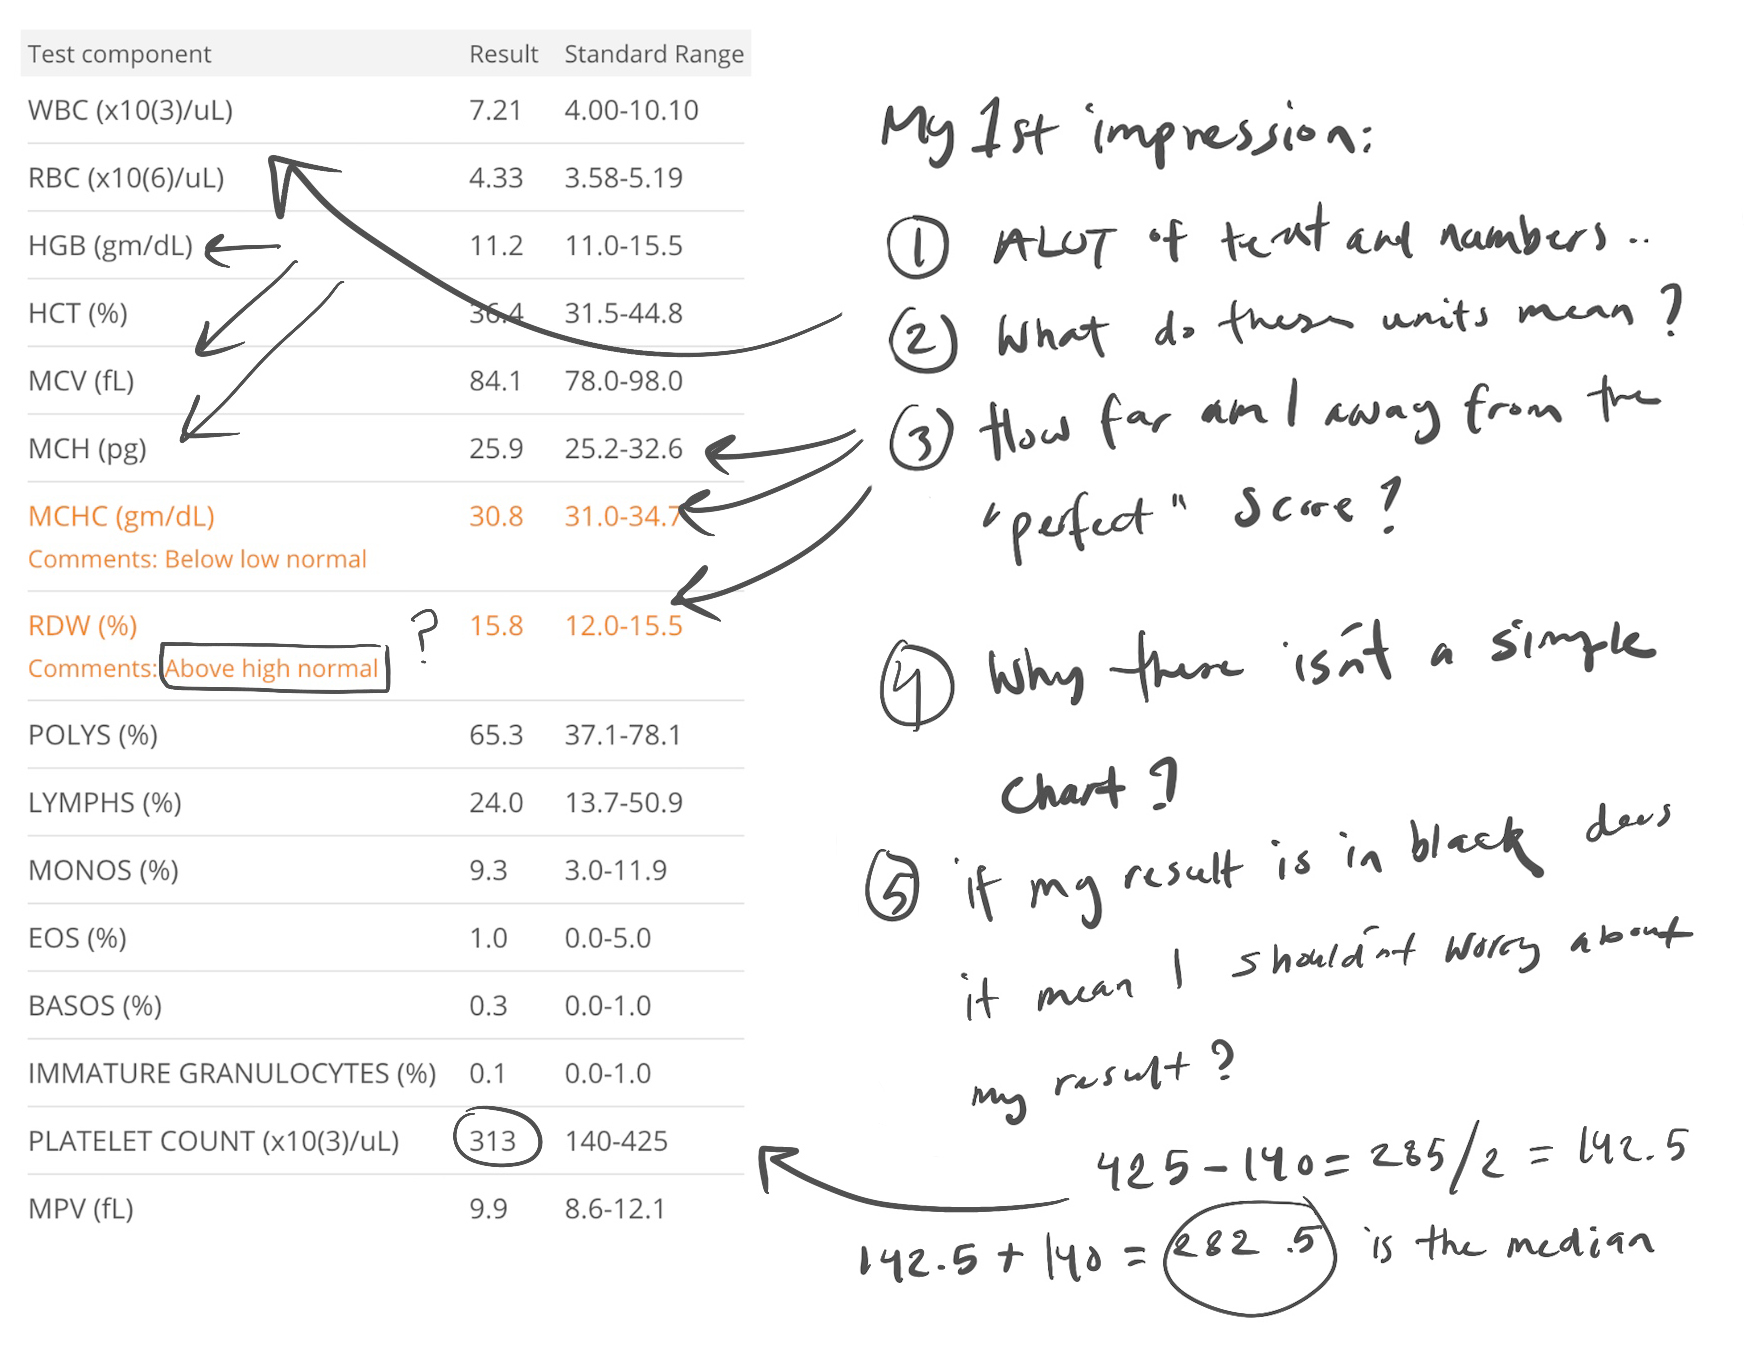 Test component Result Standard Range
WBC (x10(3)/uL) 7.21 4.00-10.10
RBC (x10(6)/uL) 4.33 3.58-5.19
HGB (gm/dL) 11.2 11.0-15.5
HCT (%) 36.4 31.5-44.8
MCV (fL) 84.1 78.0-98.0
MCH (pg) 25.9 25.2-32.6
MCHC (gm/dL) 30.8 31.0-34.7
Comments: Below low normal
RDW (%) ? 15.8 12.0-15.5
Comments: Above high normal
POLYS (%) 65.3 37.1-78.1
LYMPHS (%) 24.0 13.7-50.9
MONOS (%) 9.3 3.0-11.9
EOS (%) 1.0 0.0-5.0
BASOS (%) 0.3 0.0-1.0
IMMATURE GRANULOCYTES (%) 0.1 0.0-1.0
PLATELET COUNT (x10(3)/uL) 313 140-425
MPV (fL) 9.9 8.6-12.1
My 1st impression:
1 ALOT of text and numbers..
2 What do these units mean?
3 How far am I away from the
"perfect" score?
4 Why there isn't a simple
chart?
5 if my result is in black does
it mean I shouldn't worry about
my result?
425-140=285/2=142.5
142.5+140=282.5 is the median